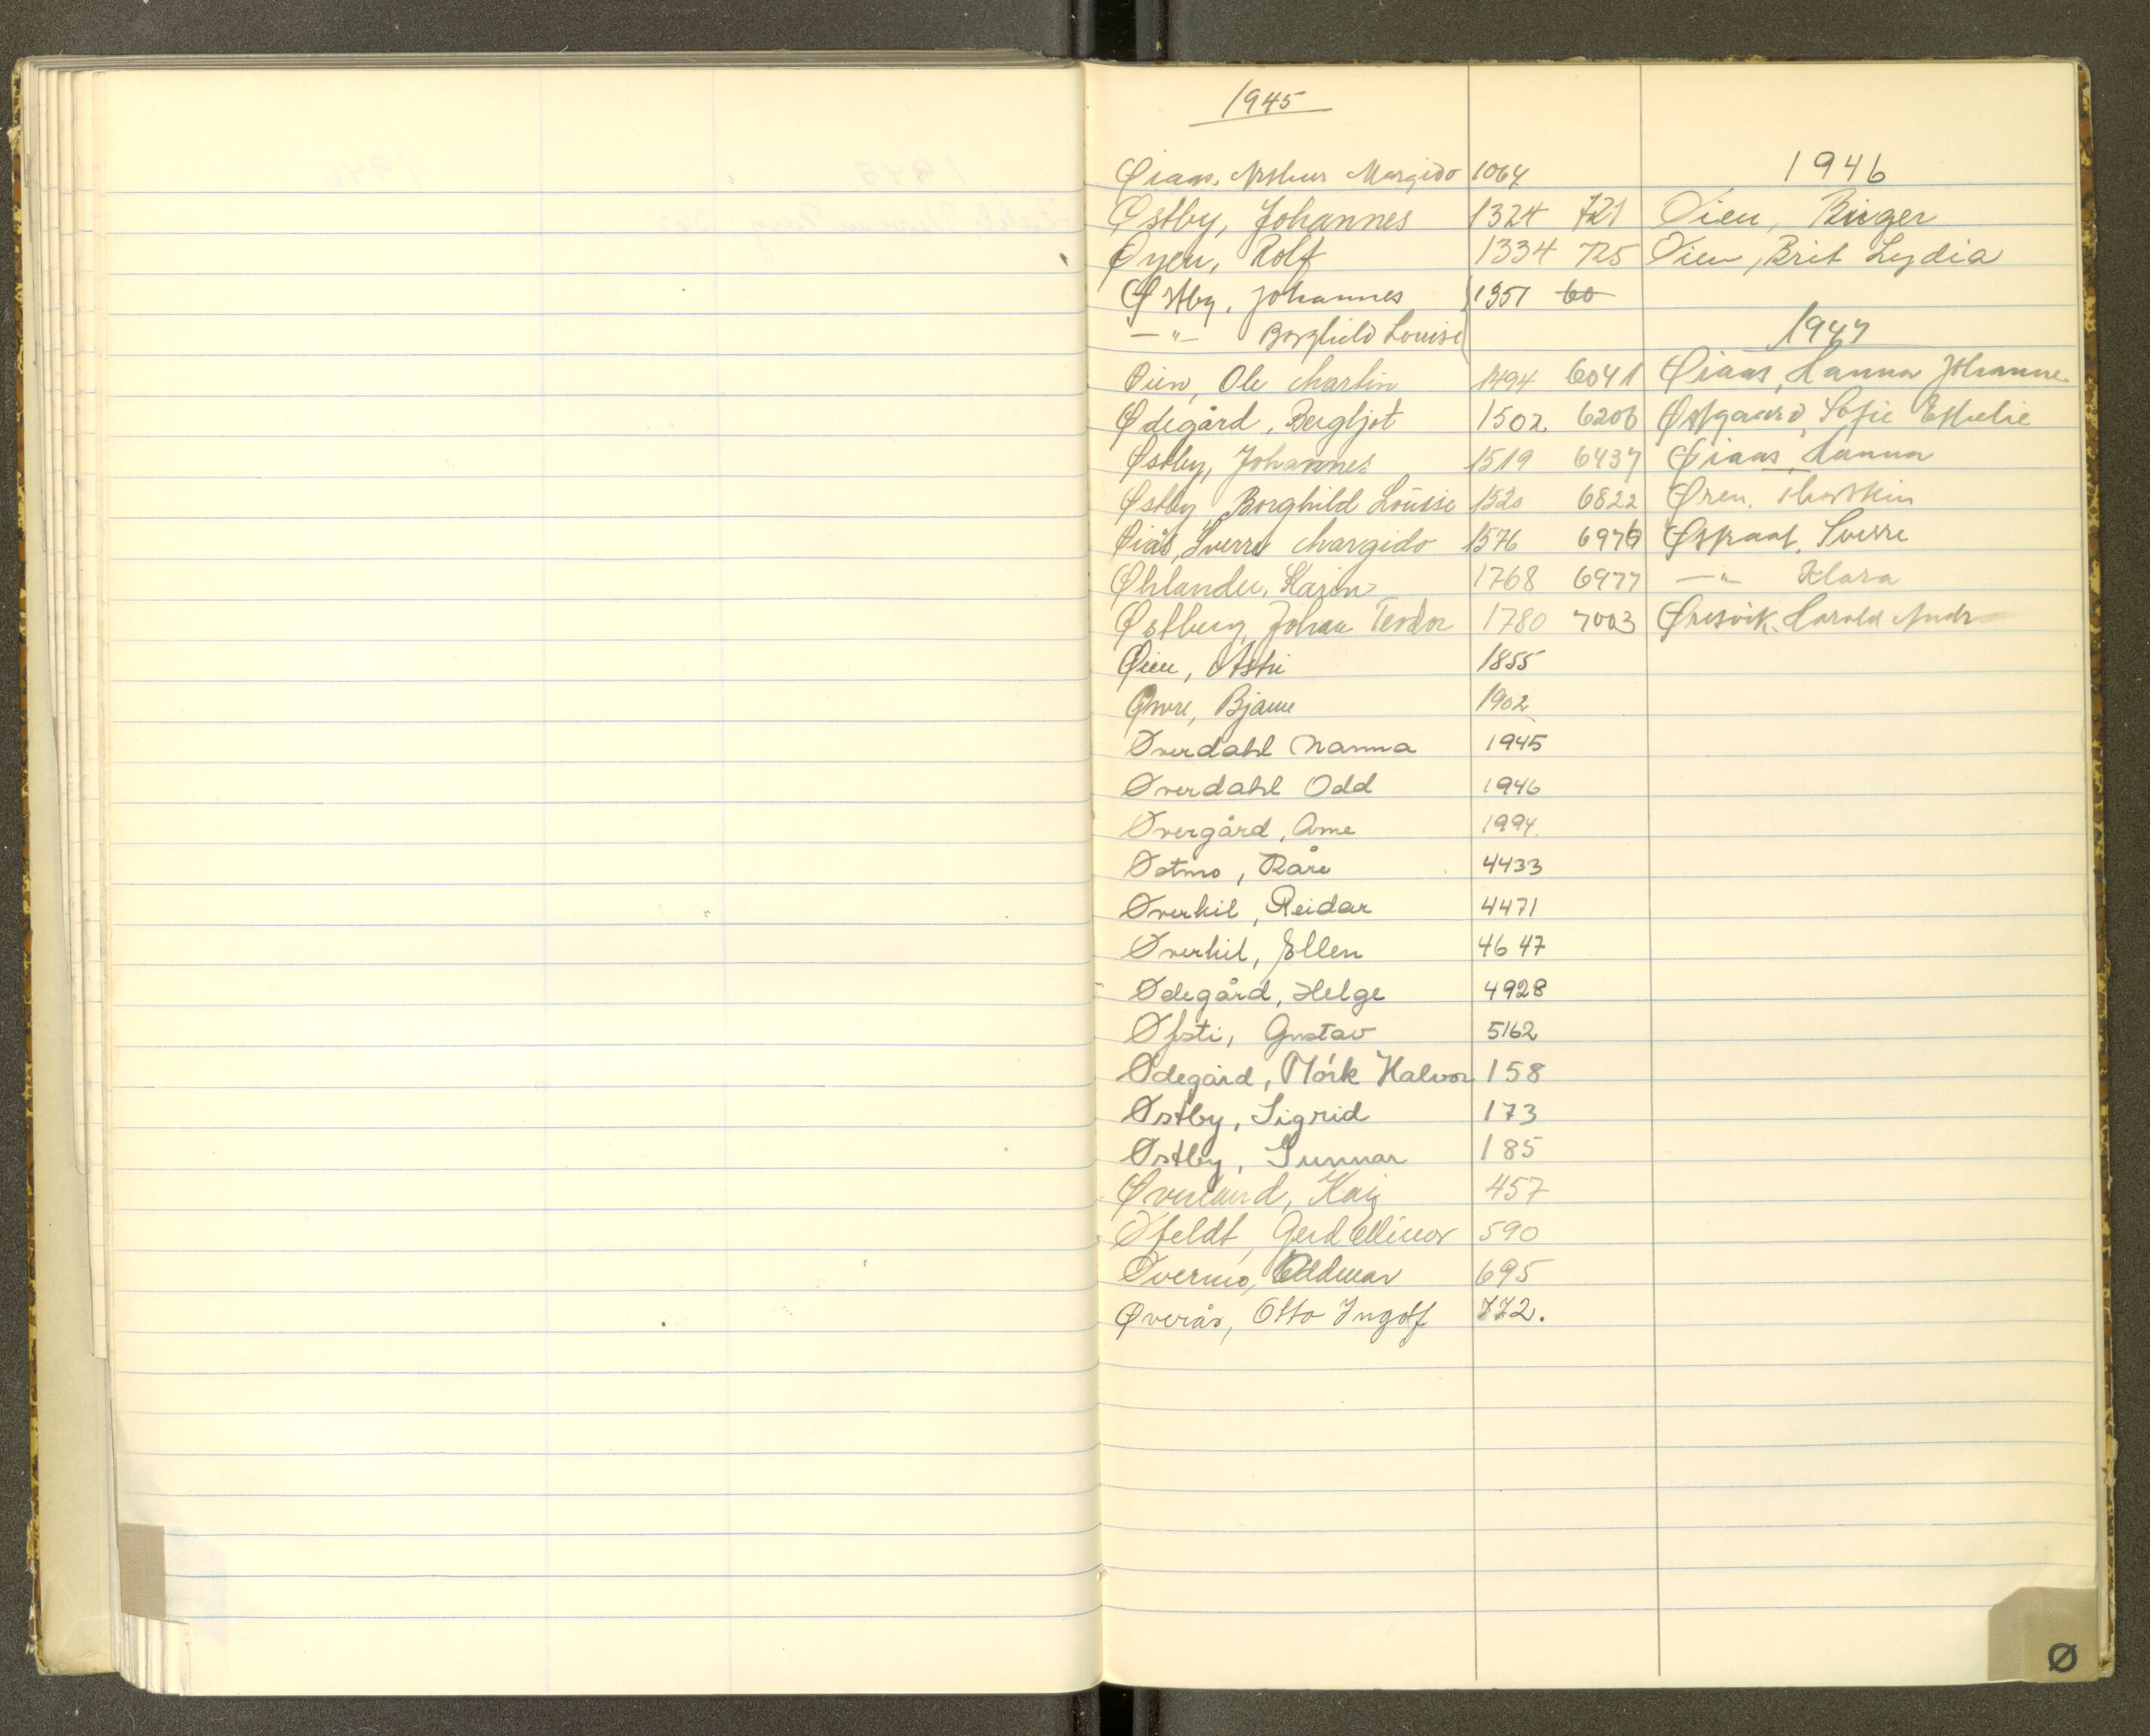 1945
Øiaas, Arthur Margido 1064
1946
Østby, Johannes 1324 721 Øien, Birger
Øyen, Rolf 1334 725 Øien, Brit Lydia
Østby, Johannes 1351 60
—"— Borghild Louise
1947
Øien, Ole Martin 1494 6041 Øiaas, Hanna Johanne
Ødegård, Bergljot 1502 6206 Østgaard, Sofie
Østby, Johannes 1519 6437 Øiaas, Hanna
Østby, Borghild Louise 1520 6822 Øren,
Øiås, Sverre Margido 1576 6976 Østraat, Sverre
Øhlander, Karin 1768 6977 —"— Klara
Østberg, Johan Teodor 1780 7003 Øresvik, Harald Andr
Øien, Astri 1855
Øwre, Bjarne 1902
Øverdahl Nanna 1945
Øverdahl Odd 1946
Øvergård, Arne 1994
Østmo, Kåre 4433
Øverkil, Reidar 4471
Øverkil, Ellen 4647
Ødegård, Helge 4928
Øfsti, Gustav 5162
Ødegård, Mørk Halvor 158
Østby, Sigrid 173
Østby, Gunnar 185
Øverland, Kai 457
Øfeldt, Gerd Ellinor 590
Øvermo, Oddmar 695
Øverås, Otto Ingolf 772.
Ø